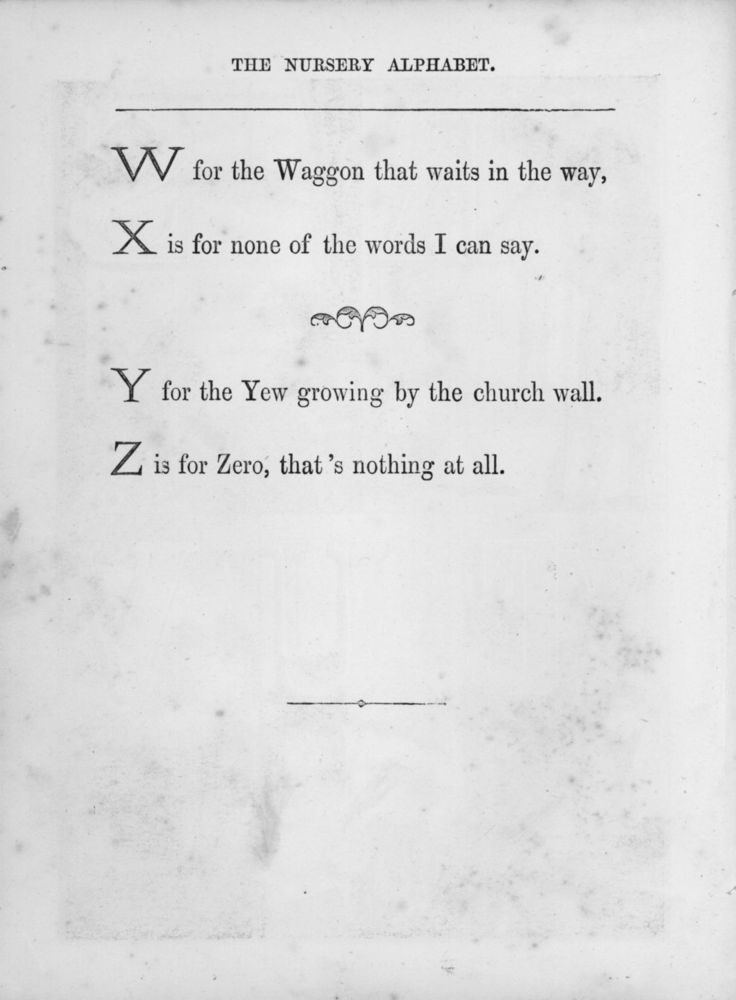 THE NURSERY ALPHABET.
W for the Waggon that waits in the way,
X is for none of the words I can say.
Y for the Yew growing by the church wall.
Z is for Zero, that 's nothing at all.